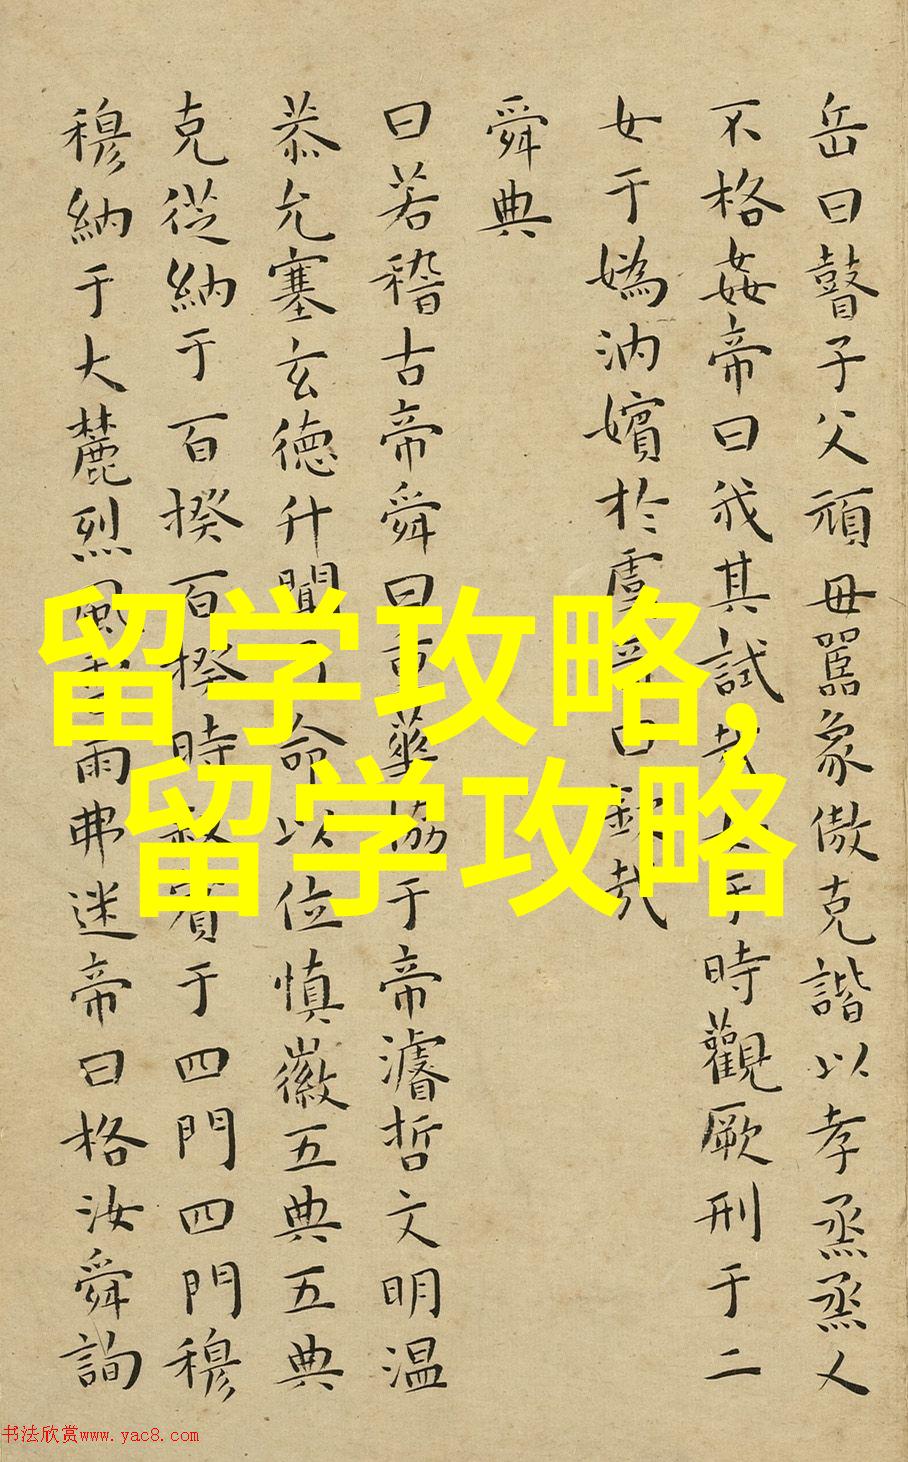 岳曰瞽子父頑母嚚象傲克諧以孝烝烝乂
不格姦帝曰我其試哉女于時觀厥刑于二
女于嬀汭嬪於虞帝曰欽哉
舜典
曰若稽古帝舜曰重華協于帝濬哲文明温
恭允塞玄徳升聞乃命以位慎徽五典五典
克從納于百揆百揆時敘賓于四門四門穆
穆納于大麓烈風雷雨弗迷帝曰格汝舜詢
留学攻略,
留学攻略
书法欣赏www.yac8.com